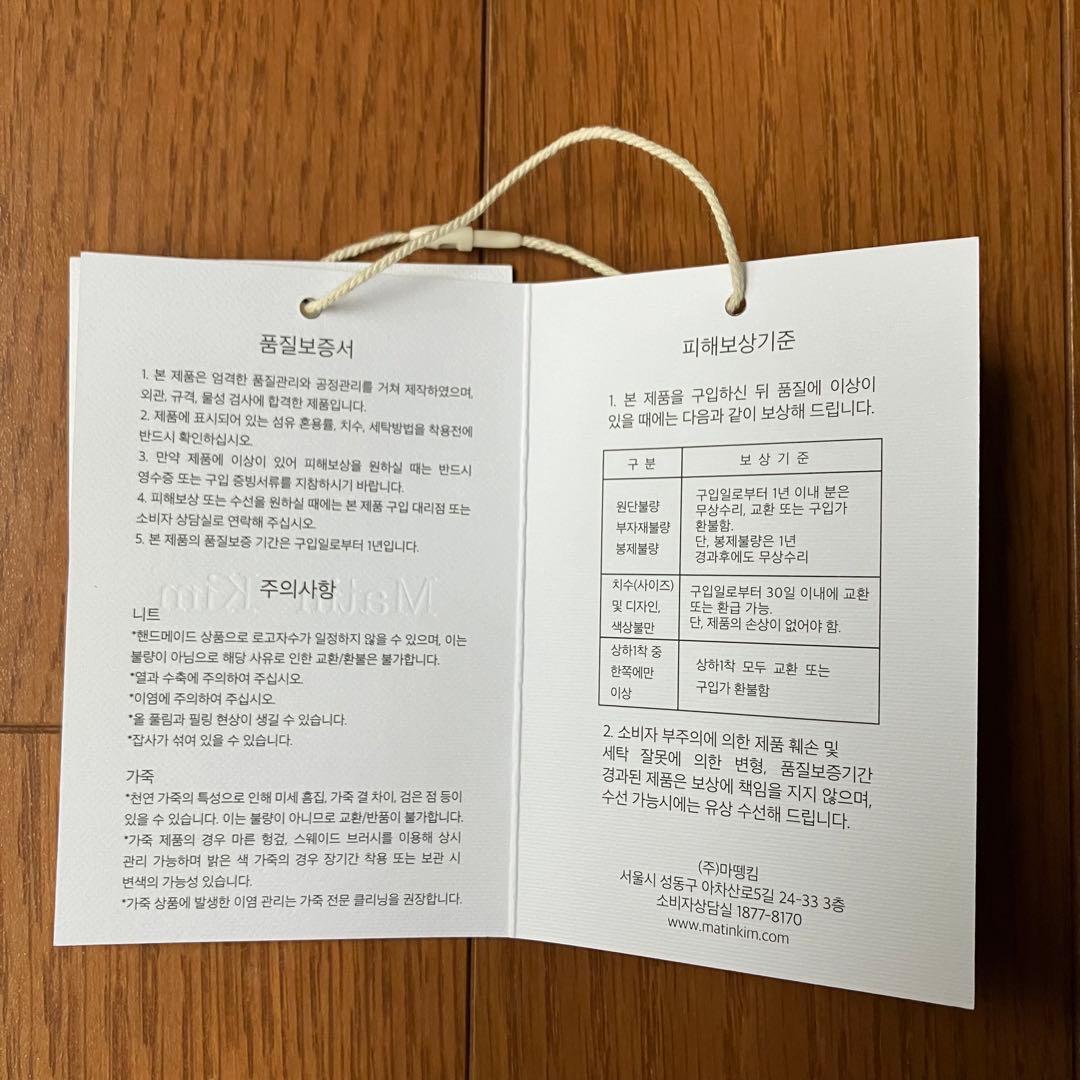 품질보증서
1. 본 제품은 엄격한 품질관리와 공정관리를 거쳐 제작하였으며,
외관, 규격, 물성 검사에 합격한 제품입니다.
2. 제품에 표시되어 있는 섬유 혼용률, 치수, 세탁방법을 착용전에
반드시 확인하십시오.
3. 만약 제품에 이상이 있어 피해보상을 원하실 때는 반드시
영수증 또는 구입 증빙서류를 지참하시기 바랍니다.
4. 피해보상 또는 수선을 원하실 때에는 본 제품 구입 대리점 또는
소비자 상담실로 연락해 주십시오.
5. 본 제품의 품질보증 기간은 구입일로부터 1년입니다.
Matin Kim
주의사항
니트
*핸드메이드 상품으로 로고자수가 일정하지 않을 수 있으며, 이는
불량이 아님으로 해당 사유로 인한 교환/환불은 불가합니다.
*열과 수축에 주의하여 주십시오.
*이염에 주의하여 주십시오.
*올 풀림과 필링 현상이 생길 수 있습니다.
*잡사가 섞여 있을 수 있습니다.
가죽
*천연 가죽의 특성으로 인해 미세 흠집, 가죽 결 차이, 검은 점 등이
있을 수 있습니다. 이는 불량이 아니므로 교환/반품이 불가합니다.
*가죽 제품의 경우 마른 헝겊, 스웨이드 브러시를 이용해 상시
관리 가능하며 밝은 색 가죽의 경우 장기간 착용 또는 보관 시
변색의 가능성 있습니다.
*가죽 상품에 발생한 이염 관리는 가죽 전문 클리닝을 권장합니다.
피해보상기준
1. 본 제품을 구입하신 뒤 품질에 이상이
있을 때에는 다음과 같이 보상해 드립니다.
구 분
보 상 기 준
원단불량
부자재불량
봉제불량
구입일로부터 1년 이내 분은
무상수리, 교환 또는 구입가
환불함.
단, 봉제불량은 1년
경과후에도 무상수리
치수(사이즈)
및 디자인,
색상불만
구입일로부터 30일 이내에 교환
또는 환급 가능.
단, 제품의 손상이 없어야 함.
상하1착 중
한쪽에만
이상
상하1착 모두 교환 또는
구입가 환불함
2. 소비자 부주의에 의한 제품 훼손 및
세탁 잘못에 의한 변형, 품질보증기간
경과된 제품은 보상에 책임을 지지 않으며,
수선 가능시에는 유상 수선해 드립니다.
(주)마뗑킴
서울시 성동구 아차산로5길 24-33 3층
소비자상담실 1877-8170
www.matinkim.com